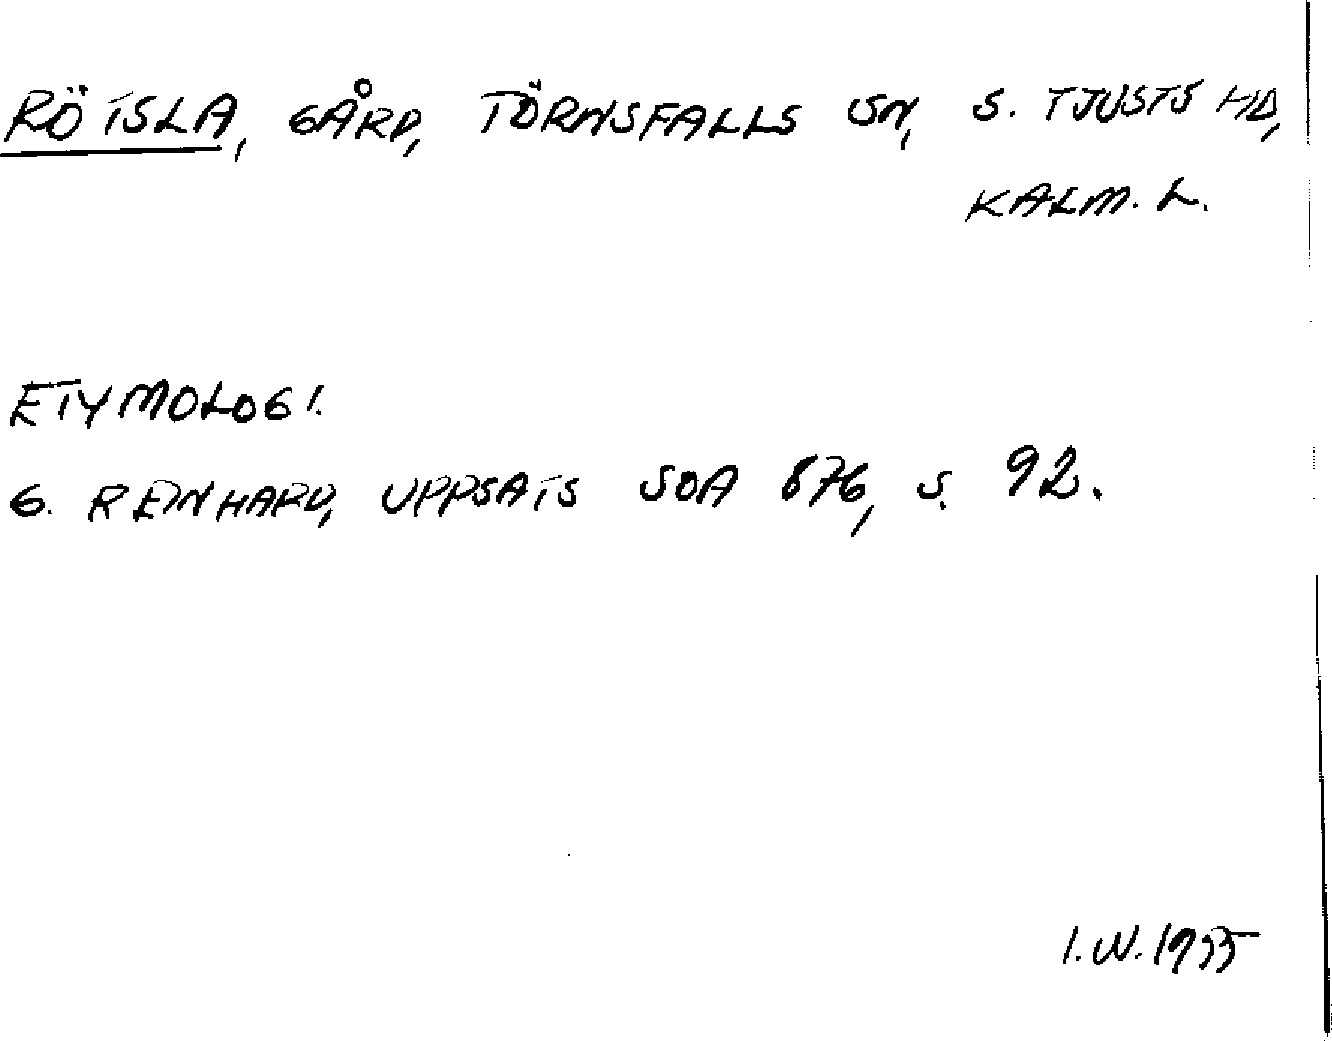 RÖTSLA, GÅRD, TÖRNSFALLS SN, S. TJUSTS HD,
KALM. L.
ETYMOLOGI.
G. REINHARD, UPPSATS SOA 876, S. 92.
I.W. 1955